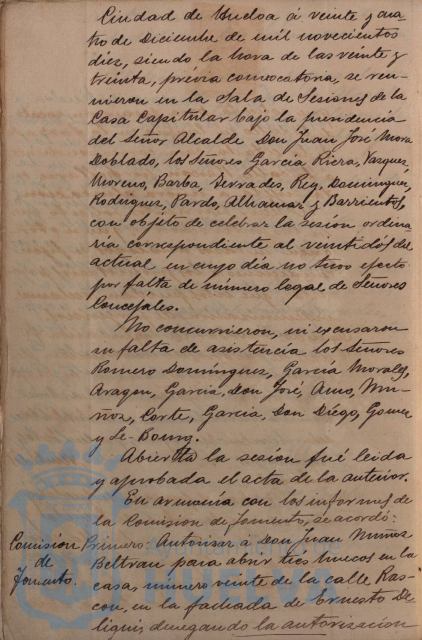 Ciudad de Huelva á veinte y cua-
tro de Diciembre de mil novecientos
diez, siendo la hora de las veinte y
treinta, prévia convocatoria, se reu-
nieron en la Sala de Sesiones de la
Casa Capitular bajo la presidencia
del Señor Alcalde Don Juan José Mora
Doblado, los Señores García Riera, Vazquez,
Moreno, Barba, Serrades, Rey, Dominguez,
Rodriguez, Pardo, Alhamar y Barrientos,
con objeto de celebrar la sesión ordina-
ria correspondiente al veintidos del
actual en cuyo día no tuvo efecto
por falta de número legal de Señores
Concejales.
No concurrieron, ni excusaron
su falta de asistencia los Señores
Romero Domínguez, García Morales,
Aragon, García, Don José, Amo, Mu-
ñoz, Corte, García, Don Diego, Gomez
y Le-Bourg.
Abierta la sesión fué leida
y aprobada el acta de la anterior.
En armonía con los informes de
la Comision de Fomento, se acordó:
Comision
de
Fomento.
Primero: Autorizar á Don Juan Muñoz
Beltran para abrir tres huecos en la
casa, número veinte de la calle Ras-
con, en la fachada de Ernesto De-
ligni; denegando la autorizacion